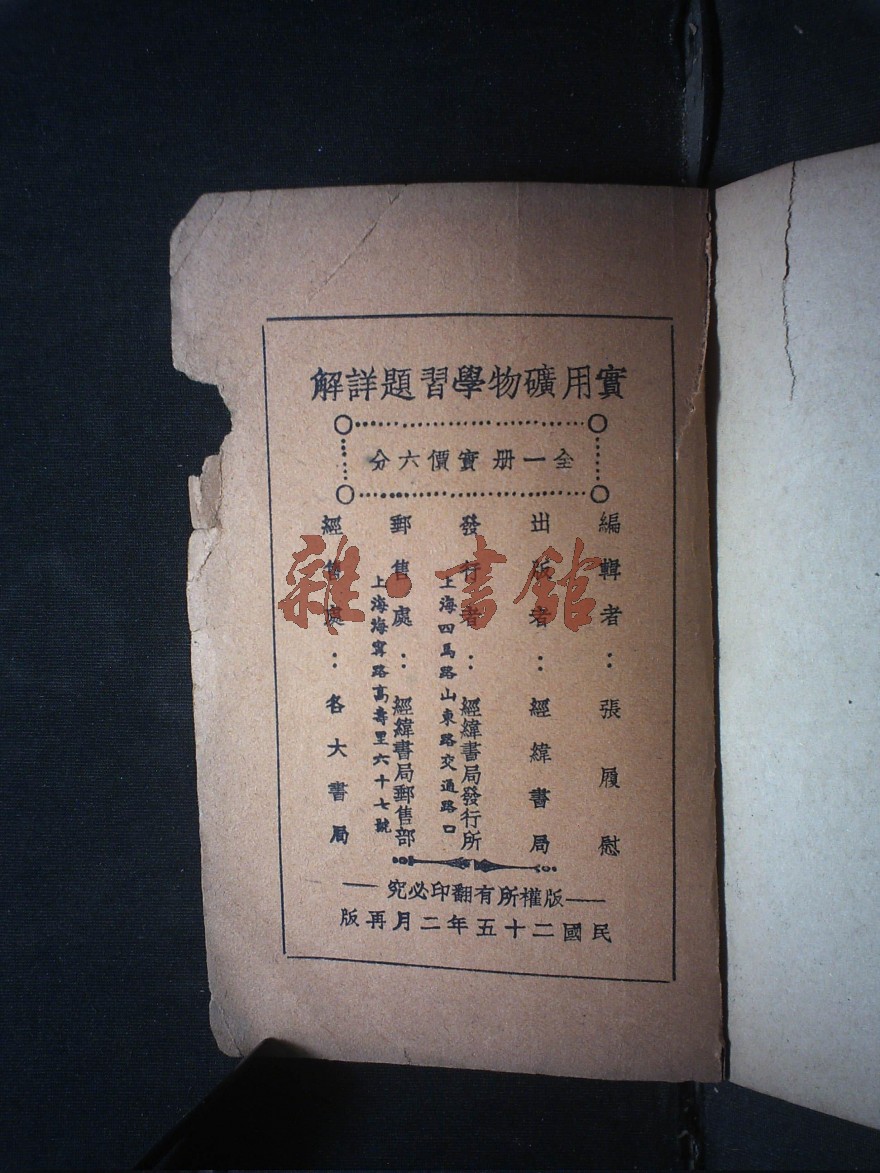 實用礦物學習題詳解
全一册實價六分
編輯者：張履慰
出版者：經緯書局
發行者：經緯書局發行所
上海四馬路山東路交通路口
郵售處：經緯書局郵售部
上海海甯路高壽里六十七號
經售處：各大書局
版權所有翻印必究
民國二十五年二月再版
雜·書館